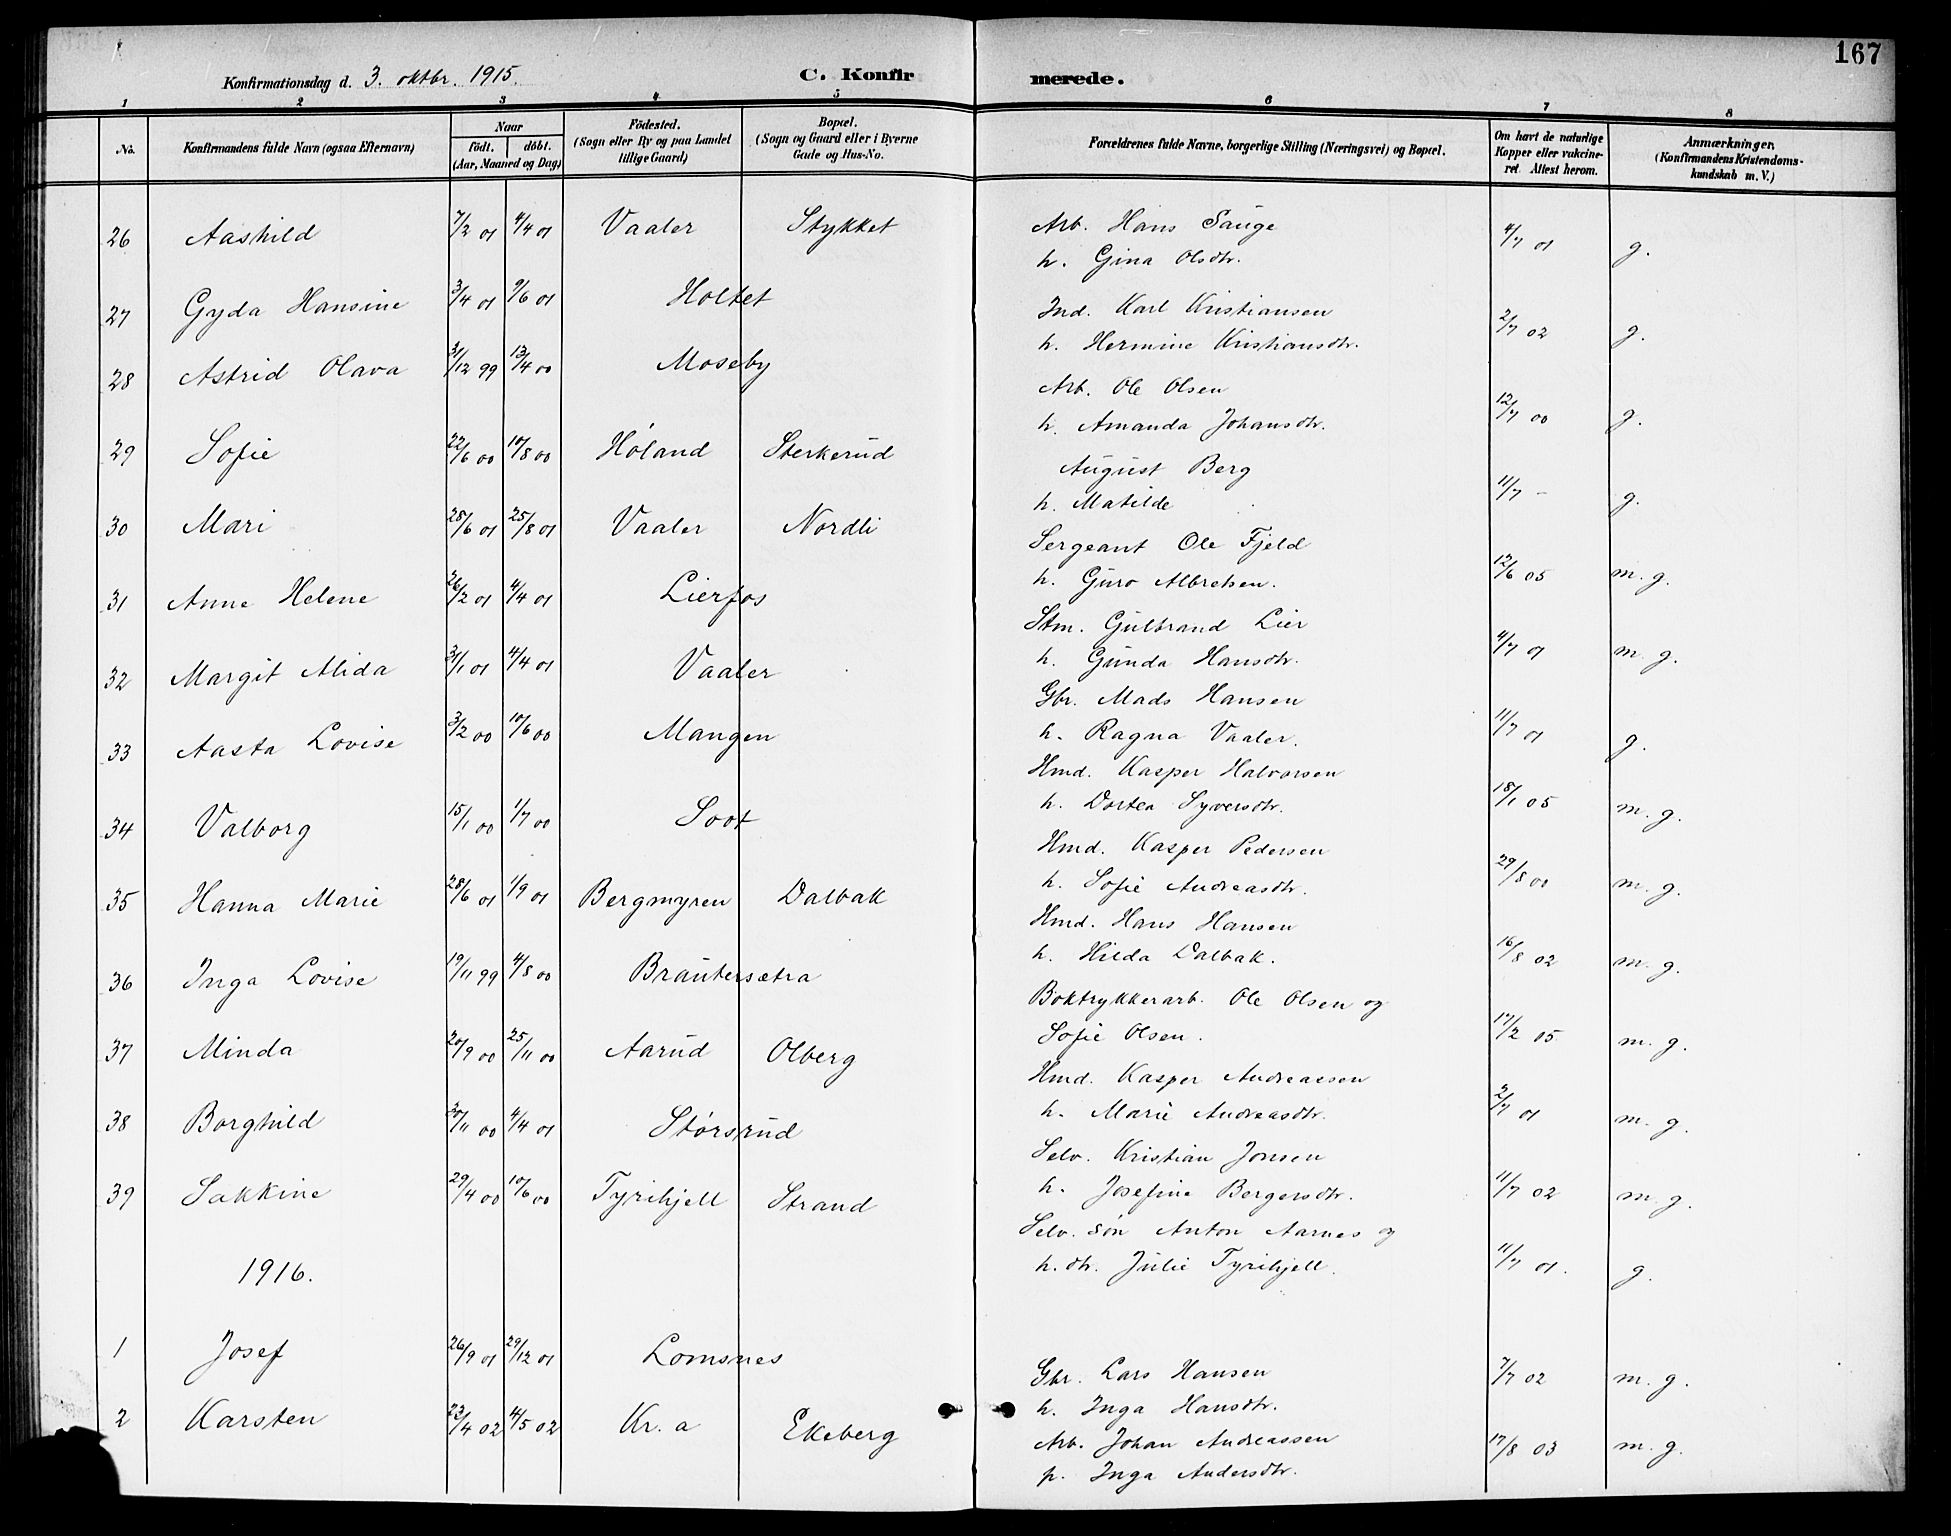 167
Konfirmationsdag d. 3. oktbr. 1915. C. Konfirmerede.
1 2 3 4 5 6 7 8
No. Konfirmandens fulde Navn (ogsaa Efternavn) Naar født. døbt. (Aar, Maaned og Dag) Födested. (Sogn eller By og paa Landet tillige Gaard) Bopæl. (Sogn og Gaard eller i Byerne Gade og Hus-No. Forældrenes fulde Navne, borgerlige Stilling (Næringsvei) og Bopæl. Om havt de naturlige Kopper eller vakcineret. Attest herom. Anmærkninger. (Konfirmandens Kristendomskundskab m. V.)
26 Aashild 7/2 01 4/4 01 Vaaler Stykket Arb. Hans Sauge 4/7 01 g.
h. Gina Olsdtr.
27 Gyda Hansine 3/4 01 9/6 01 Holtet Ind. Karl Kristiansen 2/7 02 g.
h. Hermine Kristiansdtr.
28 Astrid Olava 31/12 99 13/4 00 Moseby Arb. Ole Olsen 12/7 00 g.
h. Amanda Johansdtr.
29 Sofie 22/6 00 10/8 00 Høland Sterkerud August Berg 11/7 - g.
h. Matilde
30 Mari 28/6 01 25/8 01 Vaaler Nordli Sergeant Ole Fjeld 12/6 05 m. g.
h. Guro Albretsen.
31 Anne Helene 26/2 01 4/4 01 Lierfos Stm. Gulbrand Lier 4/7 01 m. g.
h. Gunda Hansdtr.
32 Margit Alida 31/1 01 4/4 01 Vaaler Gbr. Mads Hansen 11/7 01 g.
h. Ragna Vaaler.
33 Aasta Lovise 3/2 00 10/6 00 Mangen Hmd. Kasper Halvorsen 18/1 05 m. g.
h. Dortea Syversdtr.
34 Valborg 15/1 00 1/7 00 Soot Hmd. Kasper Pedersen 29/8 00 m. g.
h. Sofie Andreasdtr.
35 Hanna Marie 28/6 01 1/9 01 Bergmyren Dalbak Hmd. Hans Hansen 16/8 02 m. g.
h. Hilda Dalbak.
36 Inga Lovise 19/11 99 4/8 00 Brautersætra Boktrykkerarb. Ole Olsen og 17/2 05 m. g.
Sofie Olsen.
37 Minda 20/9 00 25/11 00 Aarud Olberg Hmd. Kasper Andreassen 2/7 01 m. g.
h. Marie Andreasdtr.
38 Borghild 30/11 00 4/4 01 Størsrud Selv. Kristian Jonsen 11/7 02 m. g.
h. Josefine Bergersdtr.
39 Sakkine 29/4 00 10/6 00 Tyrihjell Strand Selv. søn Anton Aarnes og 11/7 01. g.
h. dtr. Julie Tyrihjell.
1916.
1 Josef 26/9 01 29/12 01 Lomsnes Gbr. Lars Hansen 7/7 02 m. g.
h. Inga Hansdtr.
2 Karsten 23/4 02 4/5 02 Kr. a Ekeberg Arb. Johan Andreassen 17/8 03 m. g.
p. Inga Andersdtr.